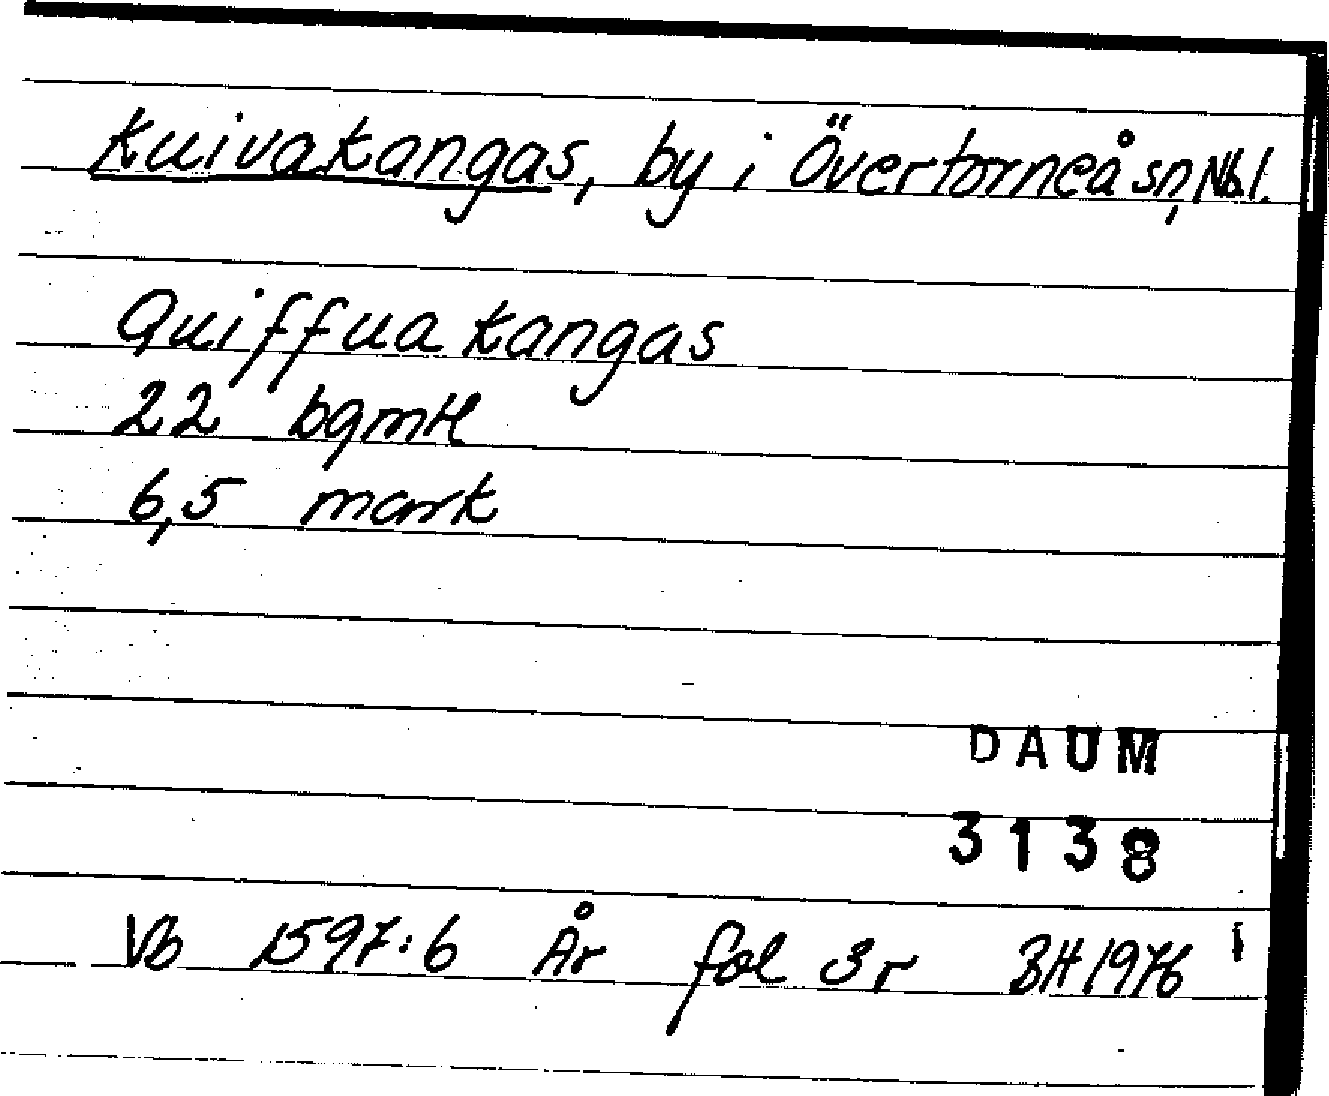 Kuivakangas, by i Övertorneå sn, Nbl.
Quiffua kangas
22 bgmtl
6,5 mark
DAUM
3138
Vb 1597:6 År fol 3r BH 1976